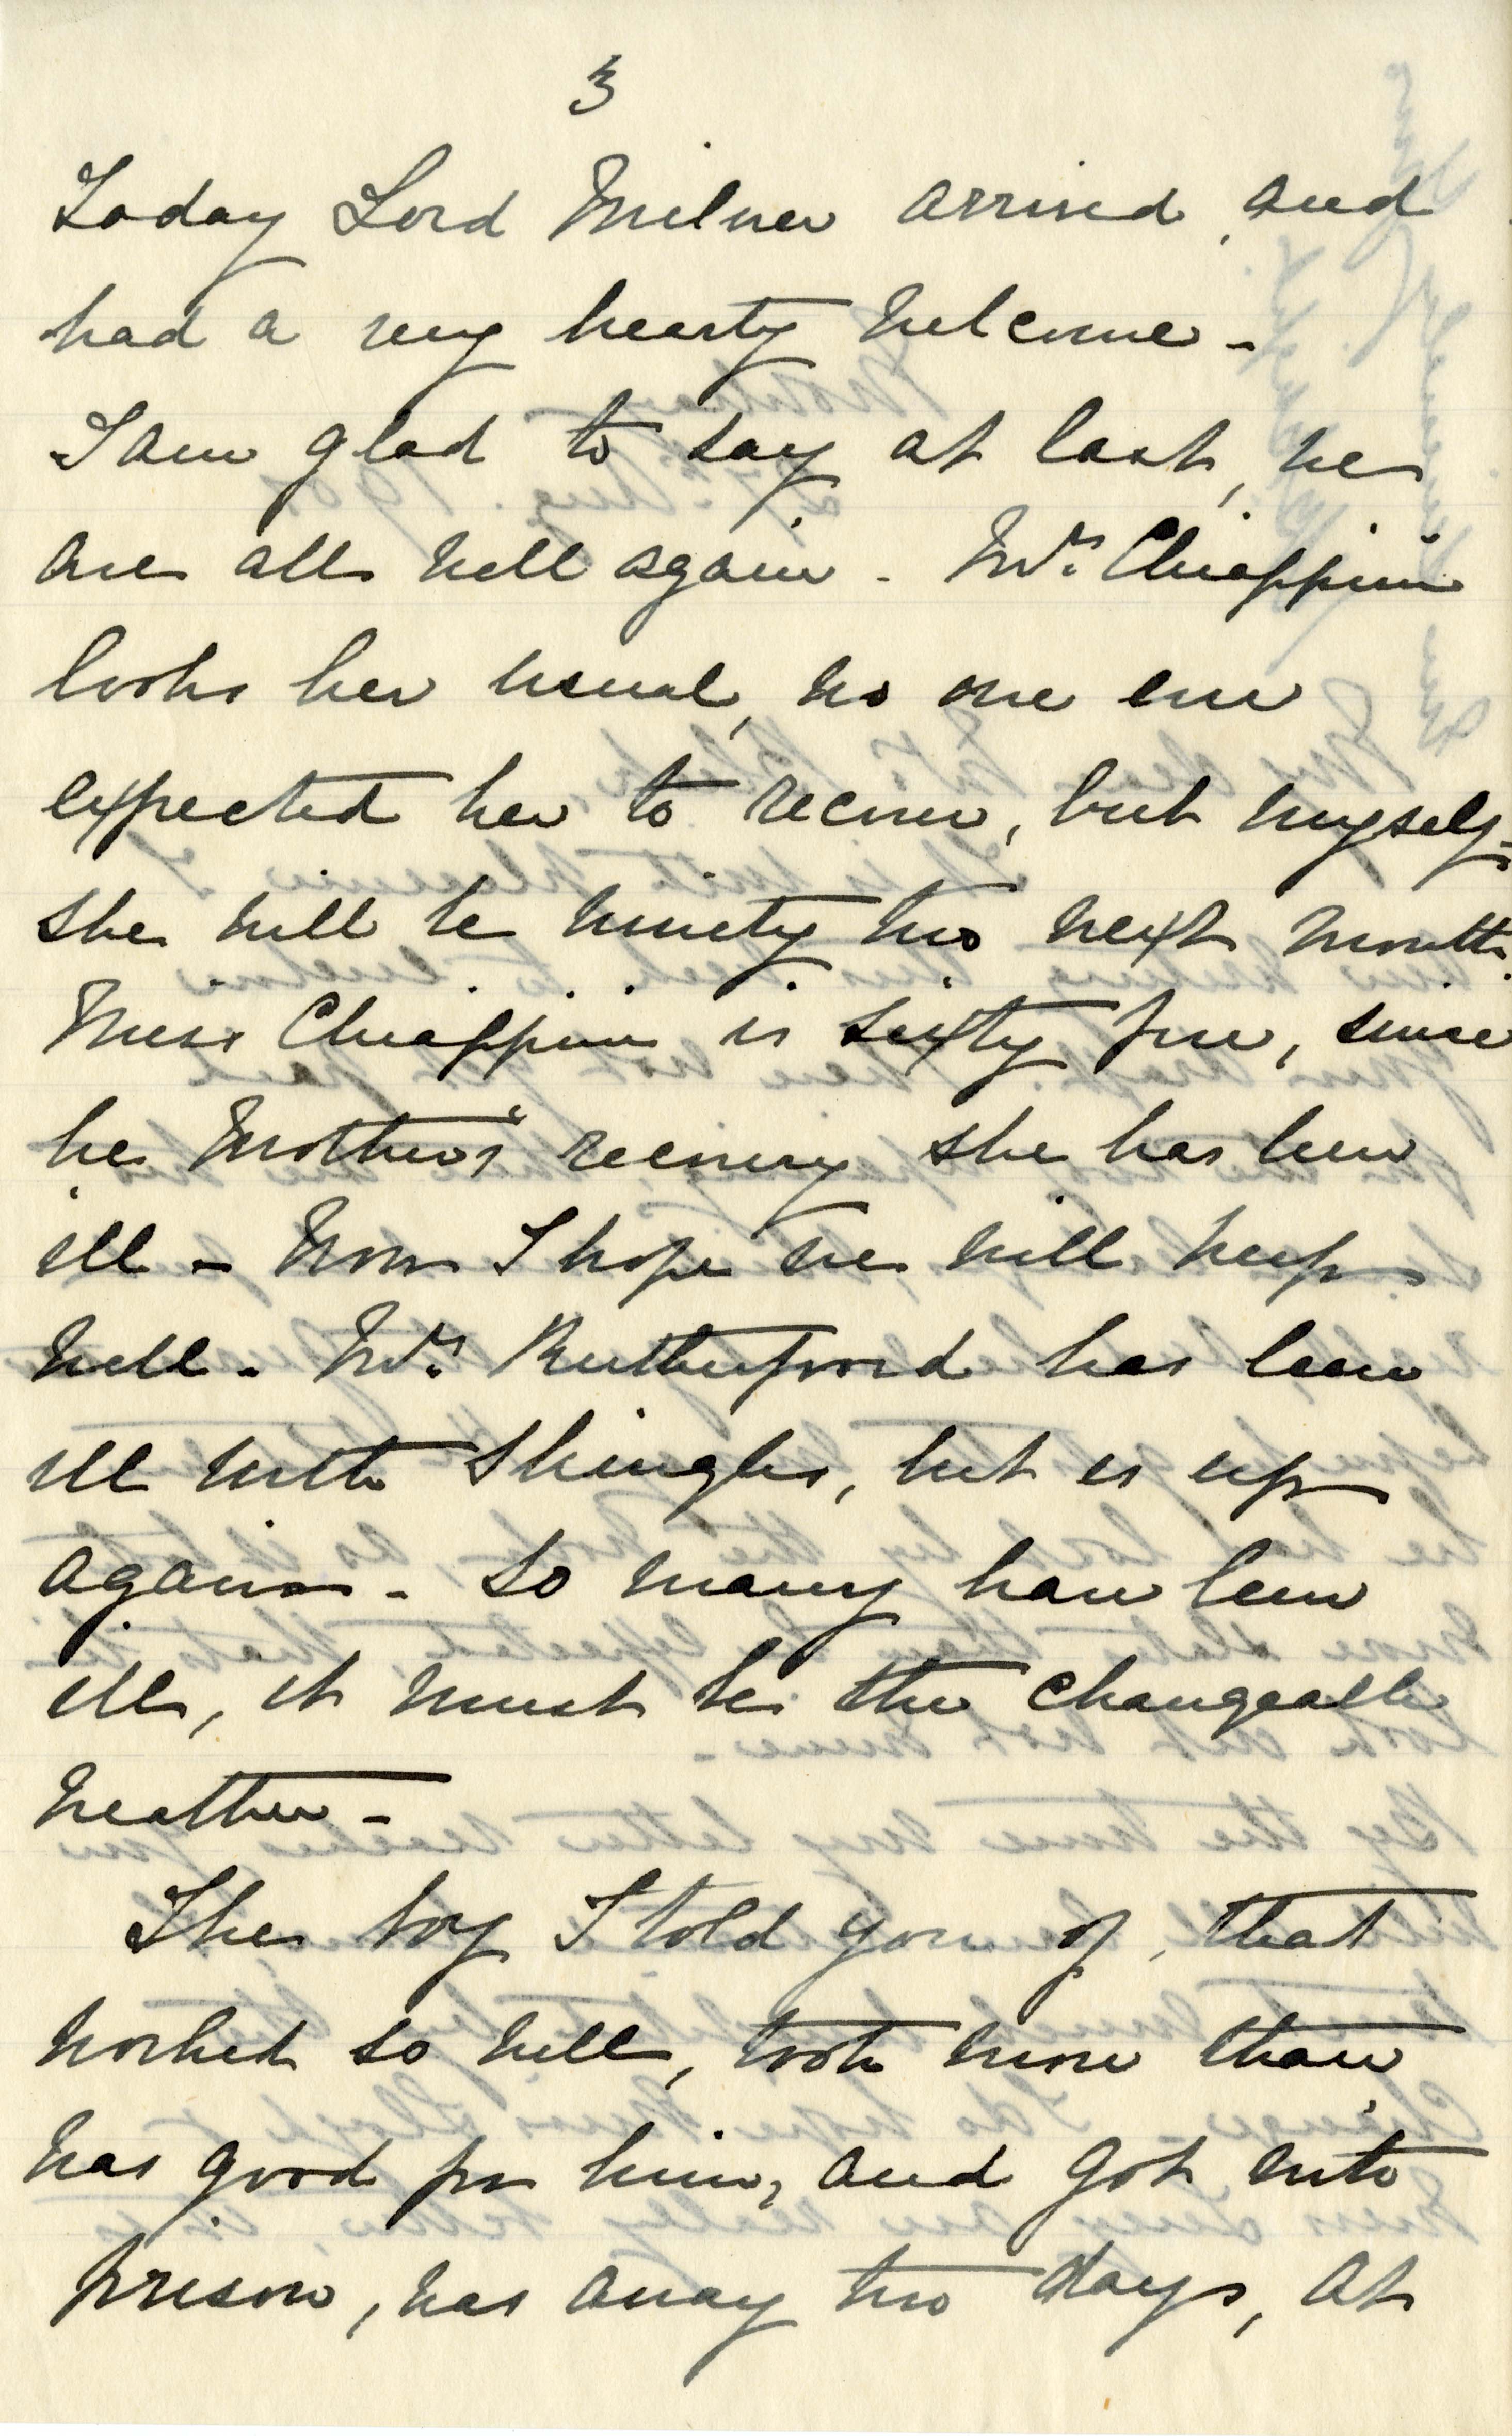 3
Today Lord Milner arrived, and
had a very hearty welcome -
I am glad to say at last, we
are all well again - Mrs. Chiappini
looks her usual, no one ever
expected her to recover, but myself -
she will be ninety two next month.
Miss Chiappini is sixty five, since
her Mother's recovery she has been
ill - Now I hope we will keep
well - Mrs. Rutherfoord has been
ill with Shingles, but is up
again - So many have been
ill, it must be the changeable
weather -
The boy I told you of, that
worked so well, took more than
was good for him, and got into
prison, was away two days, at